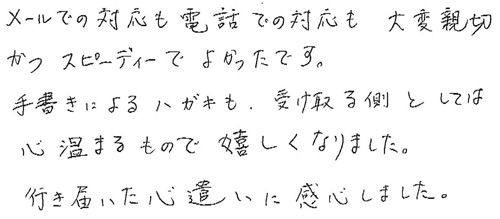 メールでの対応も電話での対応も 大変親切
かつ スピーディーで よかったです。
手書きによるハガキも、受け取る側としては
心温まるもので嬉しくなりました。
行き届いた心遣いに感心しました。